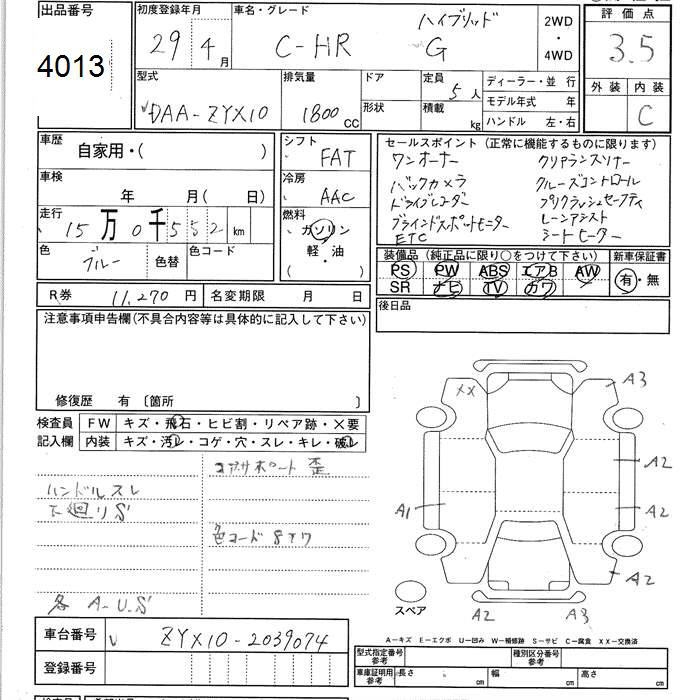 出品番号
4013
初度登録年月
29年 4月
車名・グレード
ハイブリッド
C-HR G
2WD・4WD
評価点
3.5
型式
DAA-ZYX10
排気量
1800 CC
ドア
形状
定員
5人
積載
kg
ディーラー・並行
モデル年式 年
ハンドル 左・右
外装
内装
C
車歴
自家用・( )
車検
年 月( 日)
走行
15万0千552km
色
ブルー
色替
色コード
シフト
FAT
冷房
AAC
燃料
ガソリン
軽・油
( )
セールスポイント(正常に機能するものに限ります)
ワンオーナー クリアランスソナー
バックカメラ クルーズコントロール
ドライブレコーダー プリクラッシュセーフティ
ブラインドスポットモニター レーンアシスト
ETC シートヒーター
装備品(純正品に限り○をつけて下さい)
新車保証書
PS PW ABS エアB AW
SR ナビ TV カワ
有・無
R券 11,270円
名変期限 月 日
後日品
注意事項申告欄(不具合内容等は具体的に記入して下さい)
修復歴 有 〔箇所 〕
検査員記入欄
FW キズ・飛石・ヒビ割・リペア跡・×要
内装 キズ・汚レ・コゲ・穴・スレ・キレ・破レ
コアサポート 歪
ハンドルスレ
下廻りS
色コード 8T7
各 A-U.S
XX
A3
A2
A1
A2
A2
スペア
A2
A3
A-キズ E-エクボ U-凹み W-補修跡 S-サビ C-腐食 XX-交換済
車台番号
ZYX10-2039074
登録番号
型式指定番号 参考
種別区分番号 参考
車庫証明用 参考
長さ cm
幅 cm
高さ cm